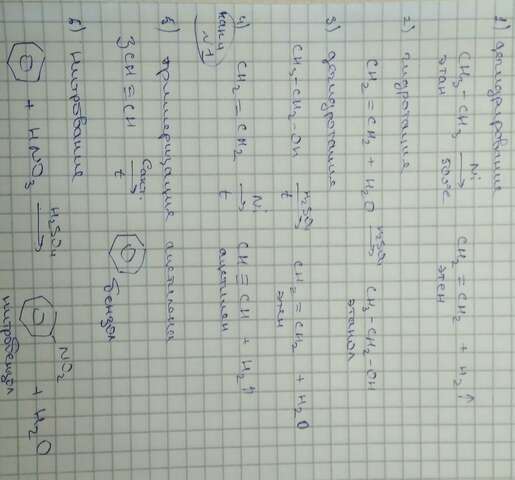 1) дегидрирование
CH₃ – CH₃ Ni→ 500°C CH₂ = CH₂ + H₂↑
этан этен
2) гидратация
CH₂ = CH₂ + H₂O H₂SO₄→ CH₃ – CH₂ – OH
этанол
3) дегидратация
CH₃ – CH₂ – OH H₂SO₄→ t CH₂ = CH₂ + H₂O
этен
4) CH₂ = CH₂ Ni→ t CH ≡ CH + H₂↑
как и №1 ацетилен
5) тримеризация ацетилена
3CH ≡ CH Cакт.→ t
бензол
6) нитрование
+ HNO₃ H₂SO₄→ NO₂ + H₂O
нитробензол